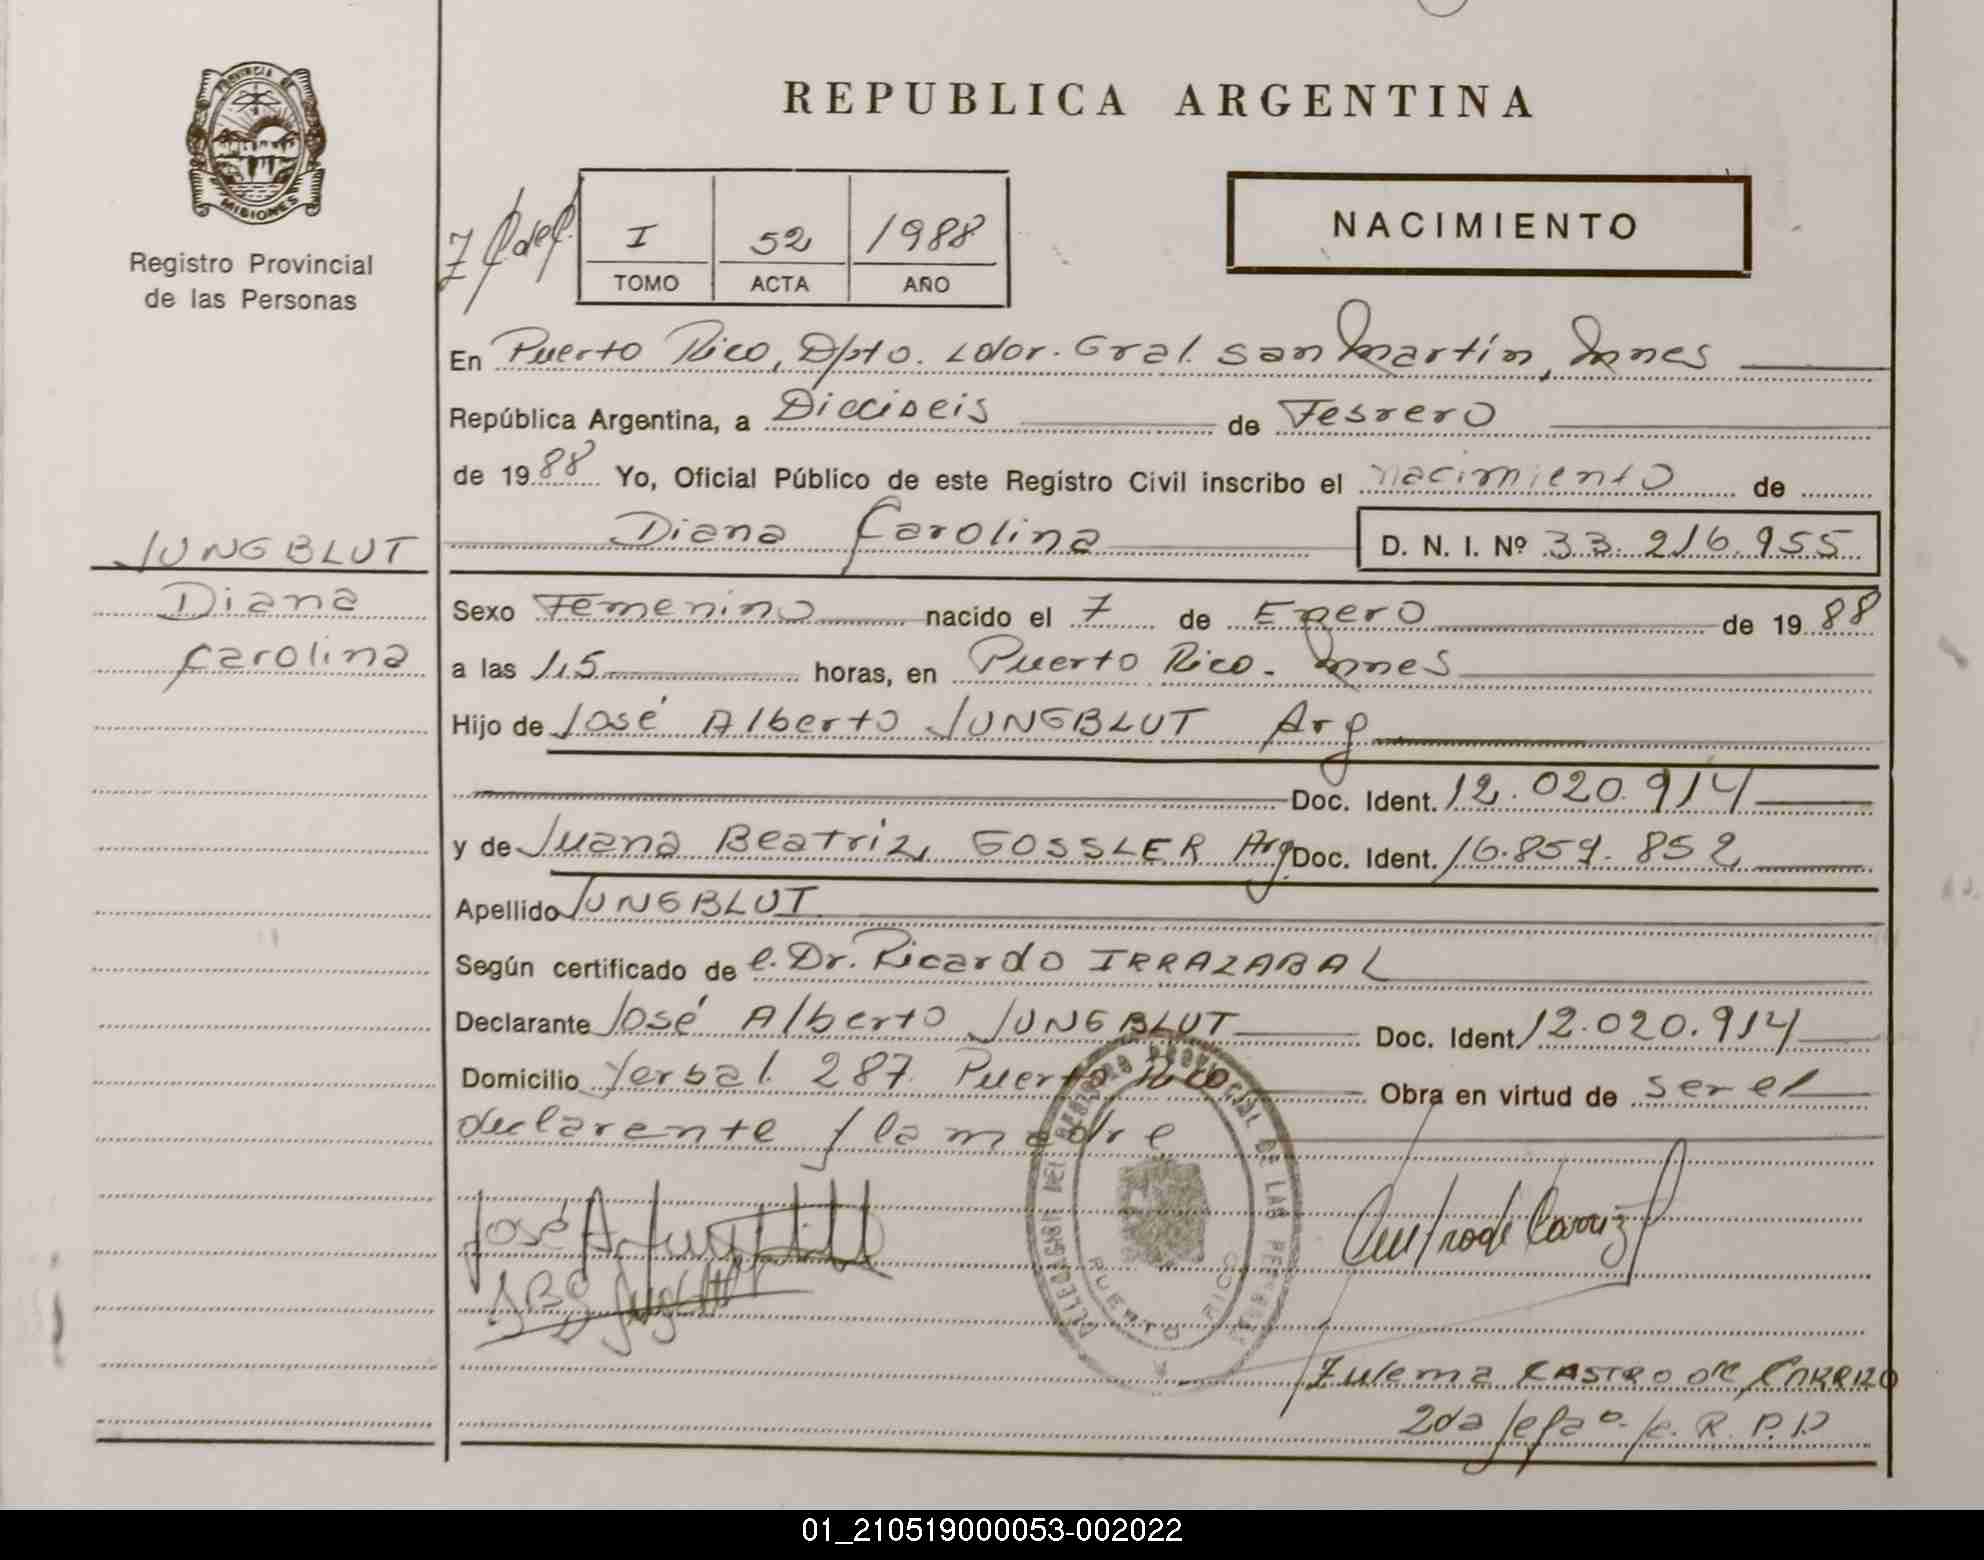 PROVINCIA DE
MISIONES
Registro Provincial
de las Personas
REPUBLICA ARGENTINA
I 52 1988
TOMO ACTA AÑO
NACIMIENTO
En Puerto Rico, Dpto. Ldor. Gral. San Martín, Mnes
República Argentina, a Dieciseis de Febrero
de 1988 Yo, Oficial Público de este Registro Civil inscribo el nacimiento de
Diana Carolina D. N. I. Nº 33.216.955
JUNGBLUT
Diana
Carolina
Sexo Femenino nacido el 7 de Enero de 1988
a las 15 horas, en Puerto Rico - Mnes
Hijo de José Alberto JUNGBLUT Arg
Doc. Ident. 12.020.914
y de Juana Beatriz GOSSLER Arg Doc. Ident. 16.859.852
Apellido JUNGBLUT
Según certificado de e. Dr. Ricardo IRRAZABAL
Declarante José Alberto JUNGBLUT Doc. Ident 12.020.914
Domicilio Yerbal 287 Puerto Rico Obra en virtud de ser el
declarente y la madre
DELEGACION DEL REGISTRO PROVINCIAL DE LAS PERSONAS
PUERTO RICO
José A
Zulema CASTRO de CARRIZO
2da Jefa R. P. P
01_210519000053-002022